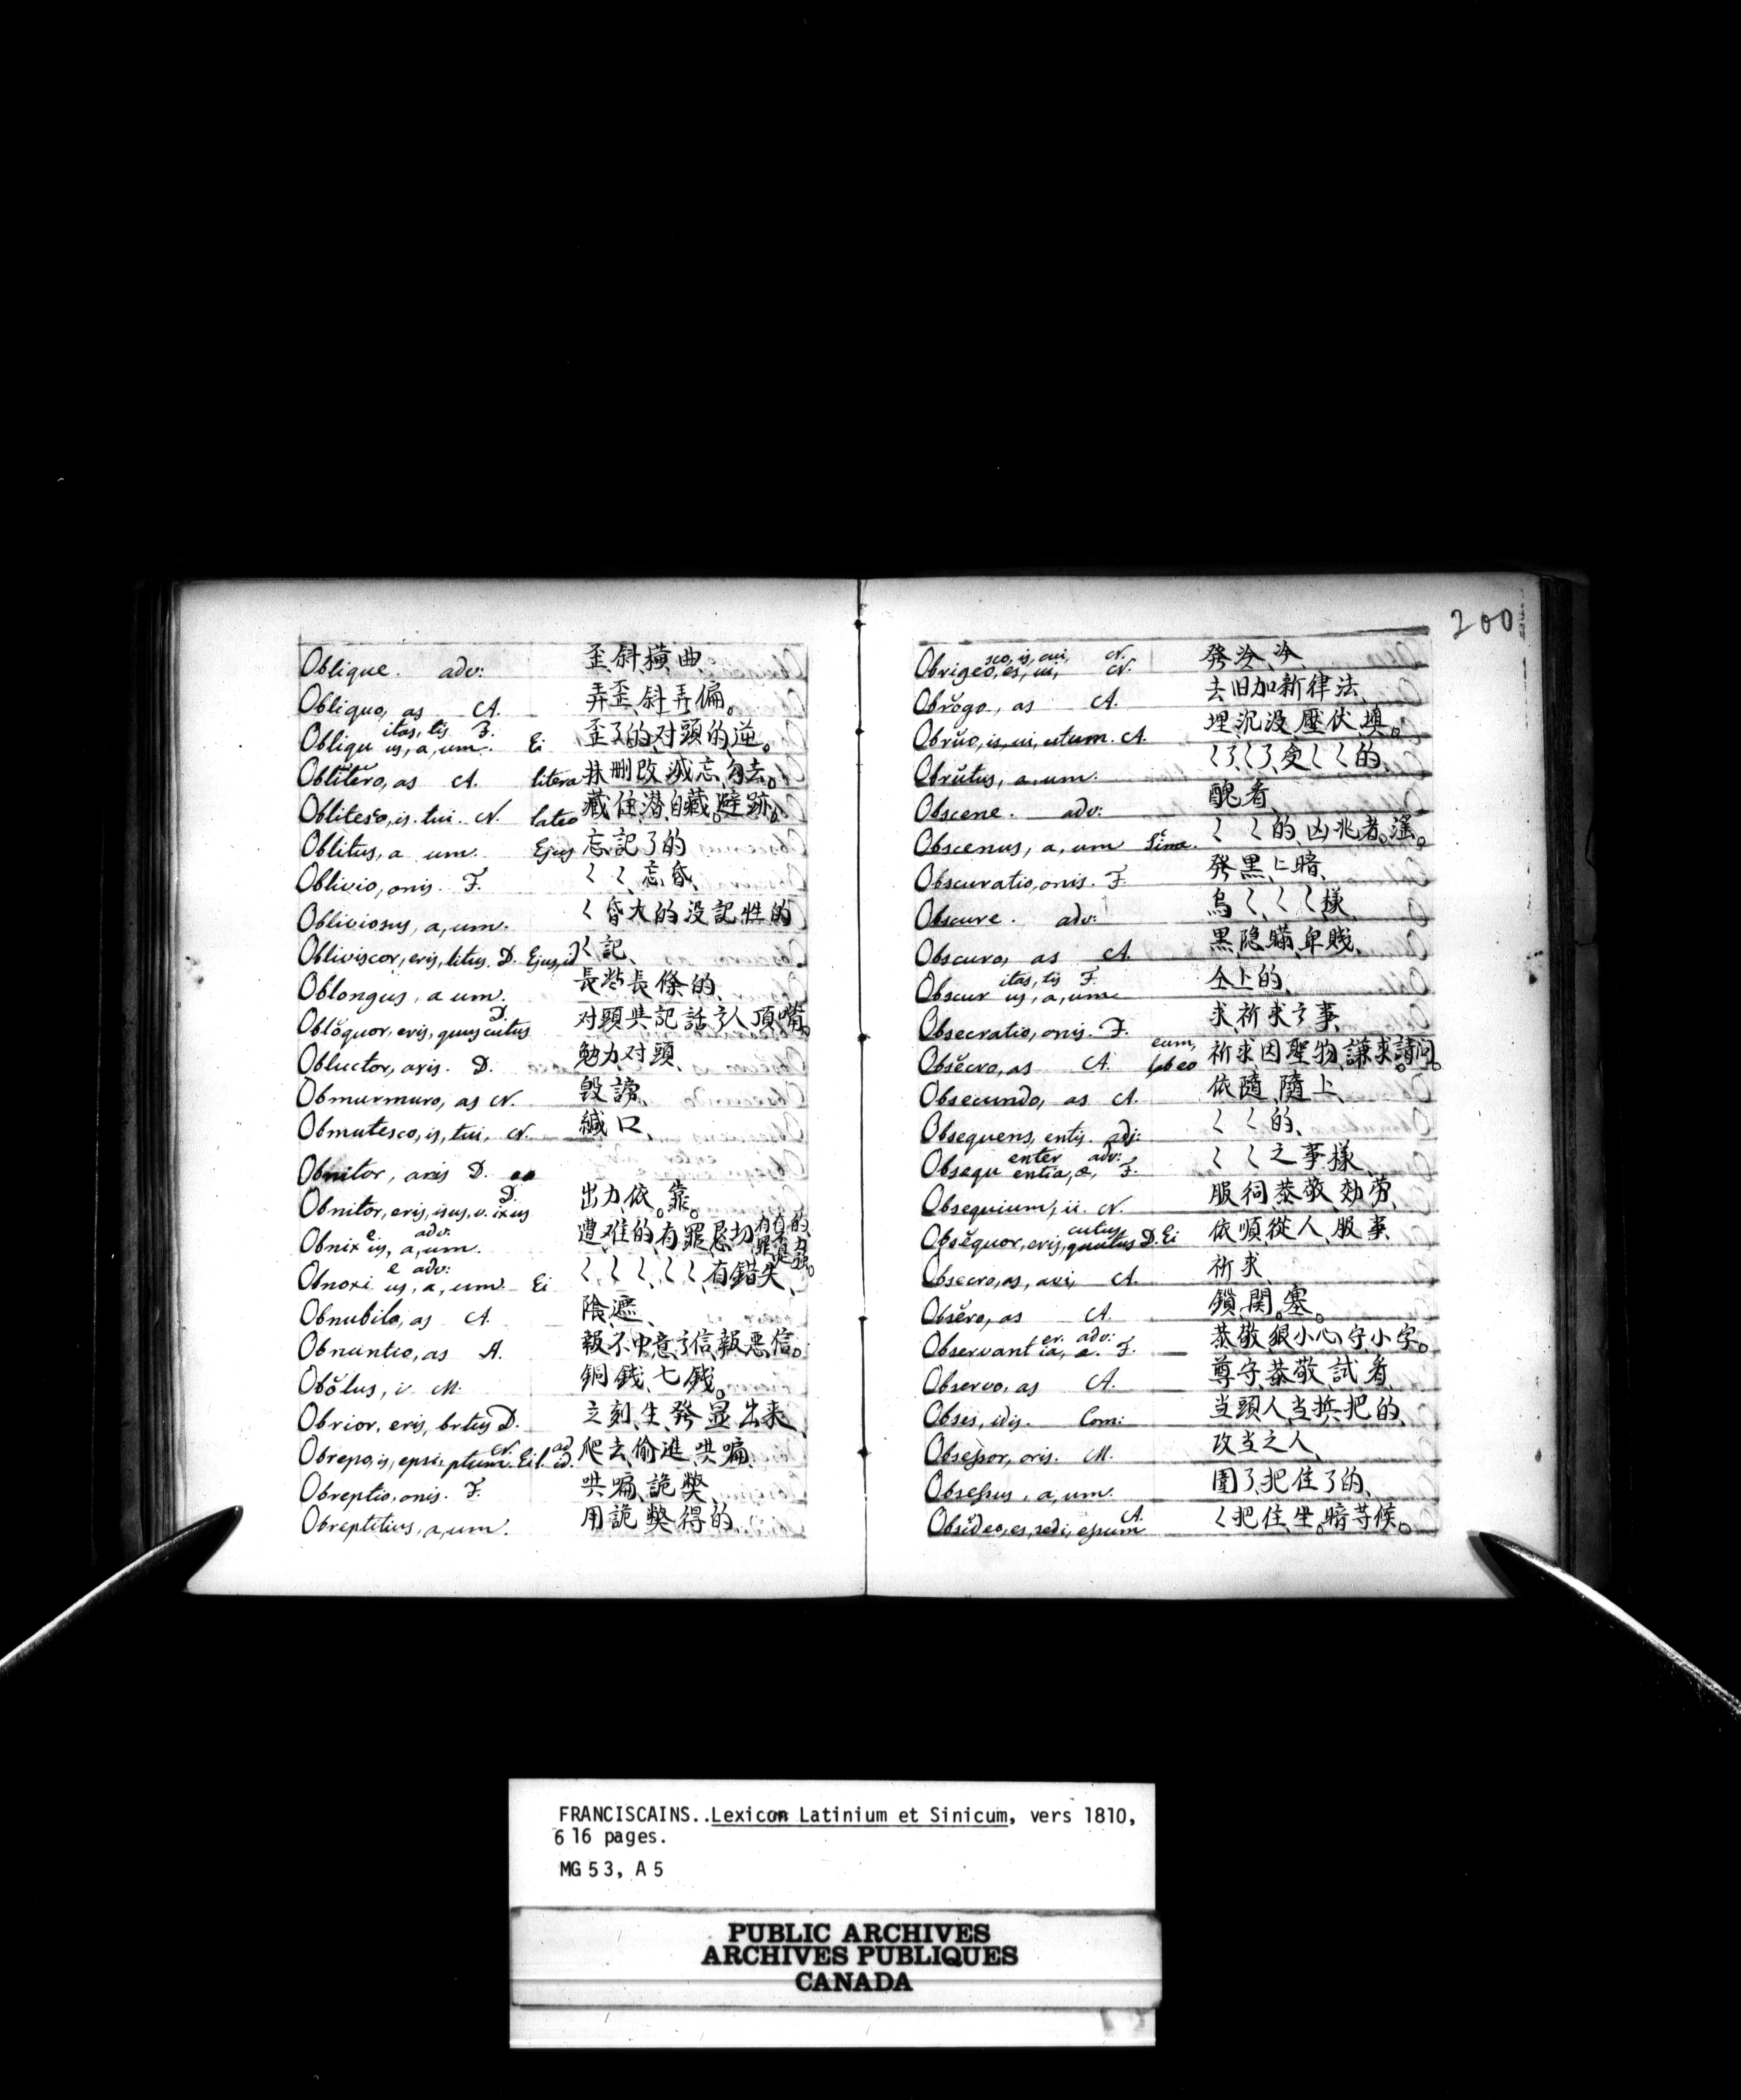 Oblique. adv: 歪斜、橫曲
Obliquo, as A. 弄歪、斜、弄偏。
Obliqu itas, tis F. us, a, um. Ei 歪了的、对頭的、逆。
Oblĭtĕro, as A. litera 抹、刪、改、滅、忘、勾去。
Oblitesco, is. tui. N. lateo 藏住、潜、自藏。避跡。
Oblitus, a um. Ejus 忘記了的
Oblivio, onis. F. く く、忘昏、
Obliviosus, a, um. く昏大的、没記性的
Obliviscor, eris, litus. D. Ejus, id く記、
Oblongus, a um. 長些、長條的、
Oblŏquor, eris, quus cutus D. 对頭
Obluctor, aris. D. 勉力、对頭、
Obmurmuro, as N. 毀謗、
Obmutesco, is, tui, N. 緘口、
Obnitor, aris D.
Obnitor, eris, isus, v. ixus D. 出力、依。靠。
Obnix e, adv: us, a, um. 遭难的、有罪
Obnoxi e adv: us, a, um Ei く、く く、く く、有錯失、
Obnubilo, as A. 陰、遮、
Obnuntio, as A. 報不中意 信、報惡信。
Obŏlus, i M. 銅錢、七錢。
Obrior, eris, brtus D. 立刻、生、發、显出来、
Obrepo, is, epsi, ptum. N. Ei l. ad id. 爬去、偷進、哄嘣、
Obreptio, onis. F. 哄嘣、詭獘、
Obreptitius, a, um. 用詭獘得的、
200
Obrigeo, es, ui, N. sco, is, cui, N. 發冷、冷、
Obrŏgo, as A. 去旧加新律法、
Obrŭo, is, ui, utum. A. 埋、沉没、壓伏、填。
Obrŭtus, a, um. く了、く了、受くく的、
Obscene. adv: 醜看、
Obscenus, a, um く く的、凶兆者。滛。
Obscuratio, onis. F. 發黑、上暗、
Obscure. adv: 烏く、く く樣、
Obscuro, as A. 黑、隐瞞、卑賤、
Obscur itas, tis F. us, a, um 仝上的、
Obsecratio, onis. F. 求、祈求 事、
Obsĕcro, as A. eum, 祈求、因聖物、謙求。請问。
Obsecundo, as A. 依隨、隨上、
Obsequens, entis. adj: く く的、
Obsequ enter adv: entia, æ, F. く く之事樣、
Obsequium, ii. N. 服伺、恭敬、効勞、
Obsĕquor, eris, cutus quutus D. Ei 依順、從人、服事、
Obsecro, as, avi, A. 祈求、
Obsĕro, as A. 鎖、関。塞。
Observant er. adv: ia, æ. F. 恭敬、狠小心守、小字。
Observo, as A. 尊守、恭敬、試看、
Obses, idis. Com: 当頭人、当 把的、
Obsessor, oris. M. 攻当之人、
Obsessus, a, um. 圍了、把住了的、
Obsĭdeo, es, sedi, essum A. く把住、坐。暗等候。
FRANCISCAINS..Lexicon Latinium et Sinicum, vers 1810,
616 pages.
MG 53, A 5
PUBLIC ARCHIVES
ARCHIVES PUBLIQUES
CANADA